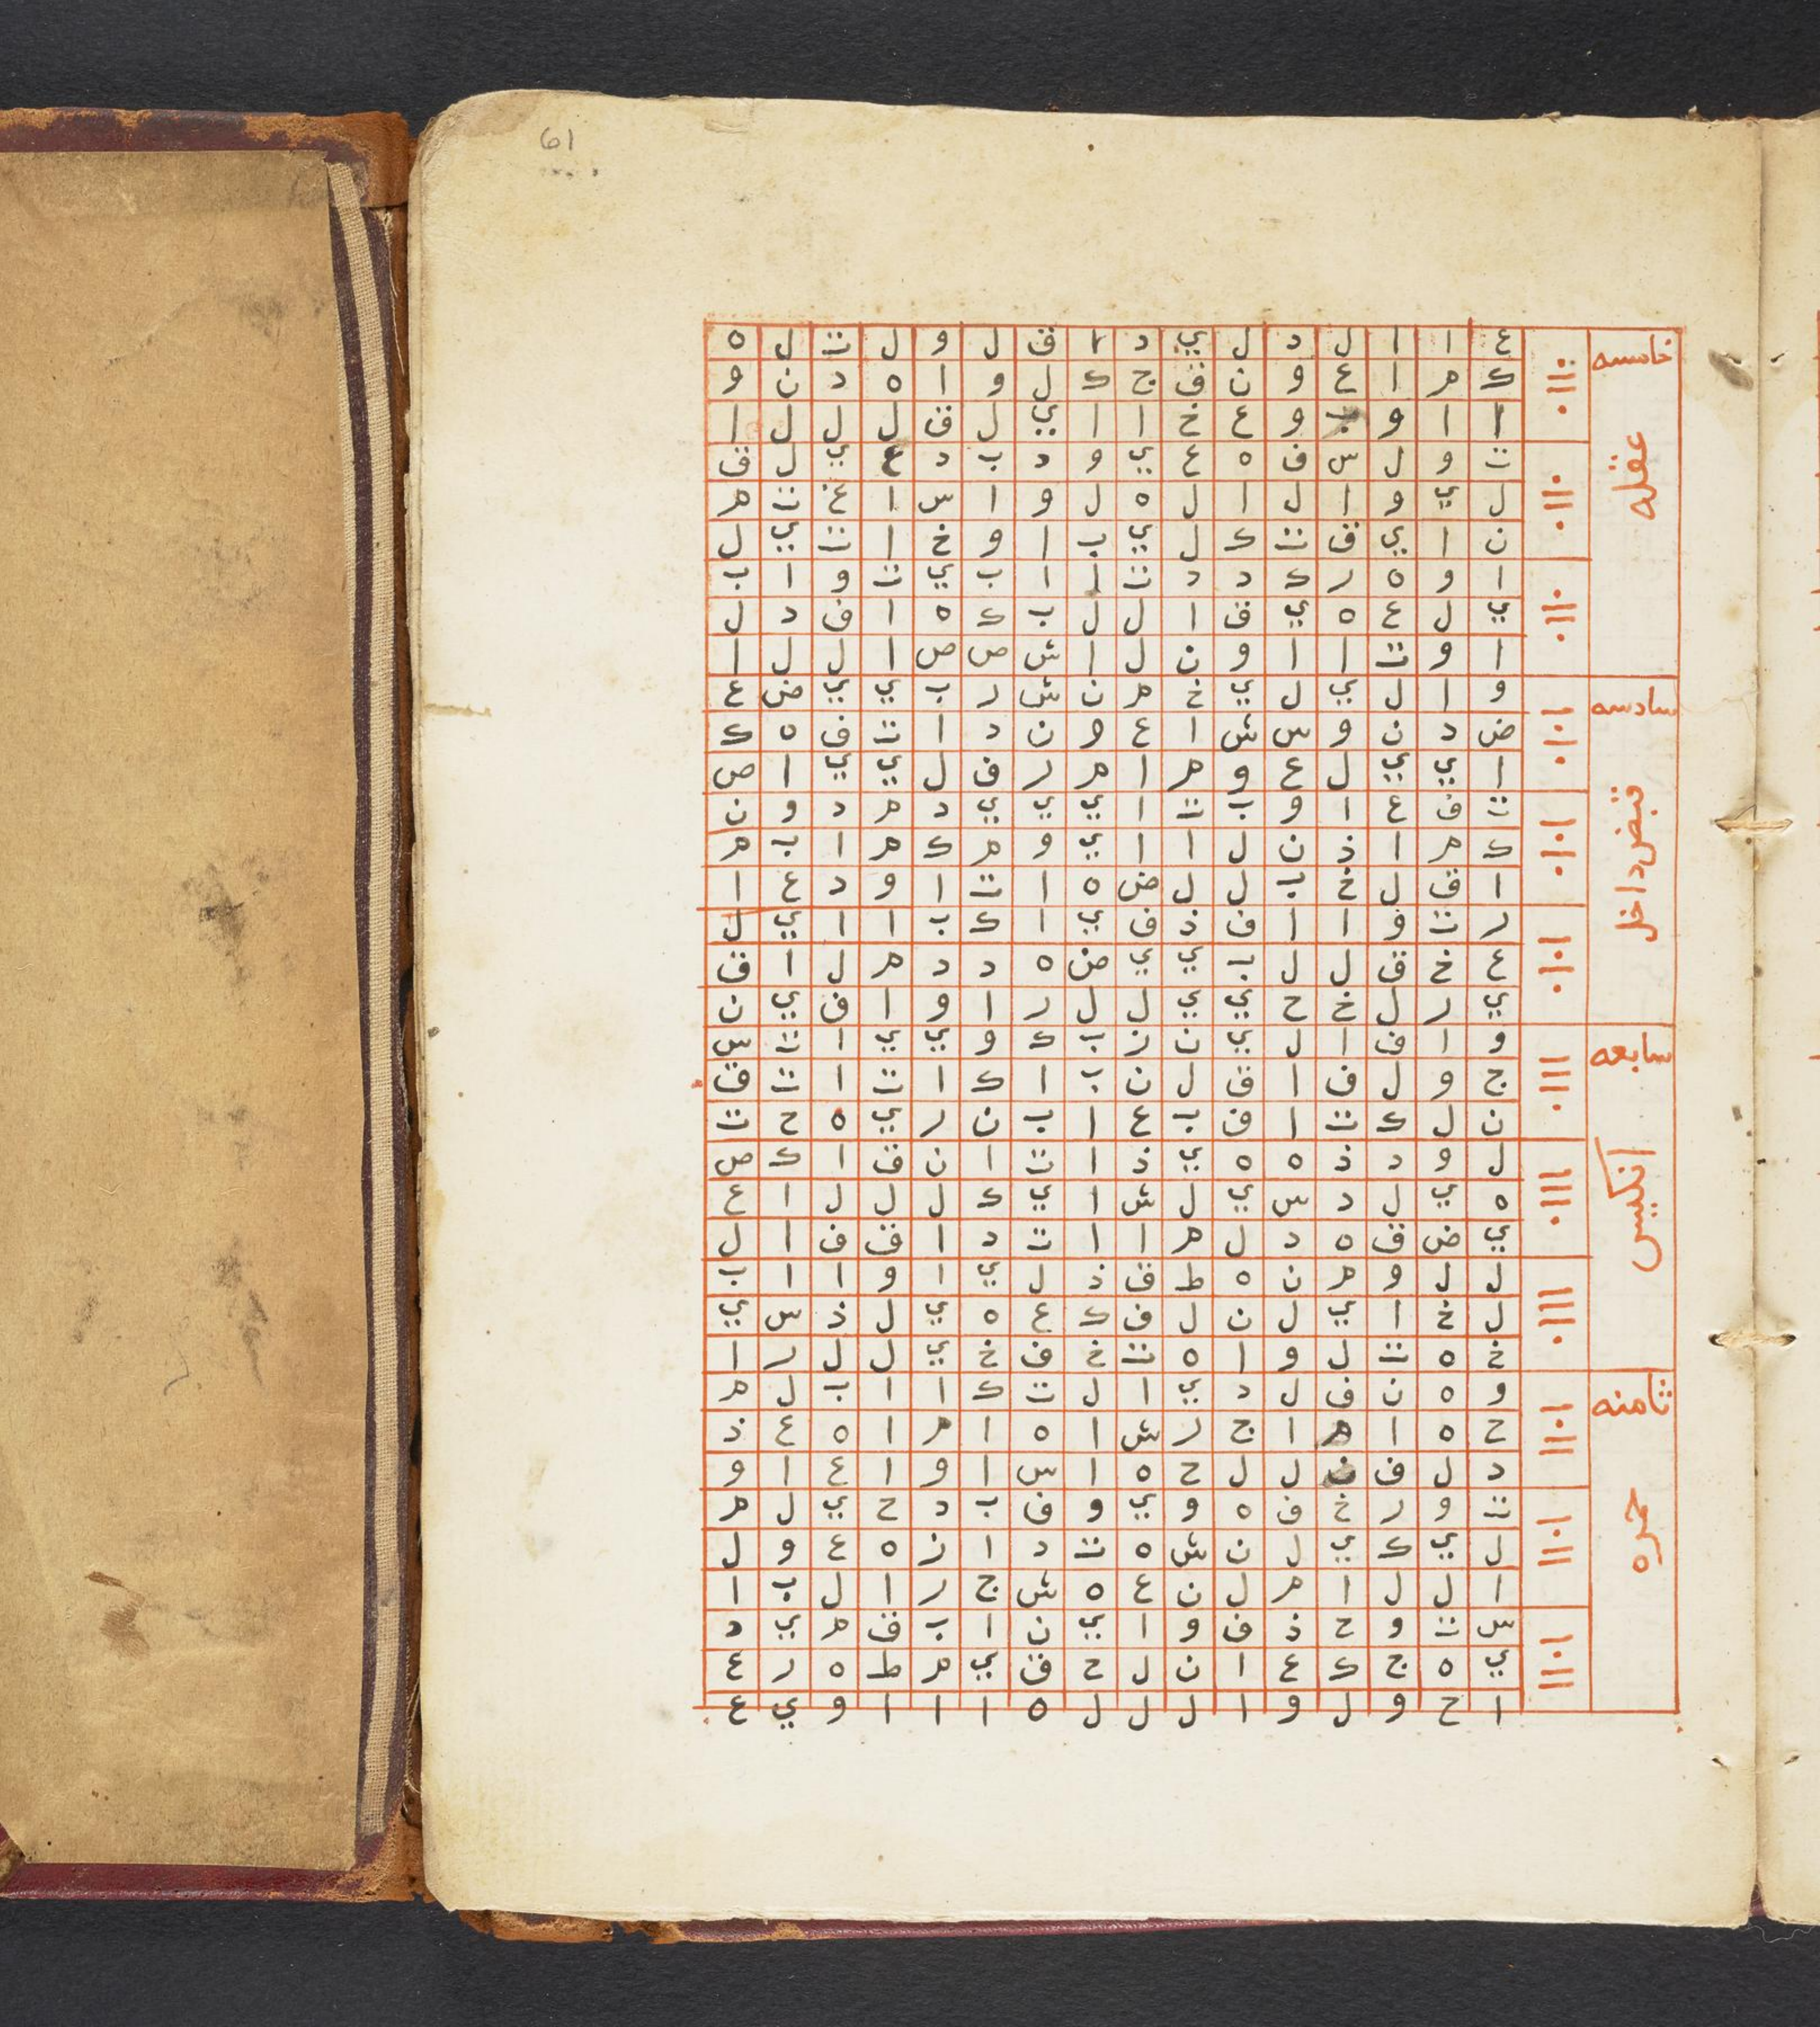 61
خامسه
عقله
ع ا ا ل د ل ي د ا ق ل و ل ت ل ه
ك م ا ع و ن ق ج ك ل و ا ه د ن و
ا ا و و ع خ ا ا ي ل ق ل ل ل ا
ت و ل س ف ه ع ي و د ب د ع ي ل ق
ل ي و ا ل ا ل ه ل و ا س ا غ ت م
ن ا ي ق ت ك ل ي ب ا و خ ا ت ي ل
ا و ه ر ك د د ت ا ا ب ي ت و ا ب
ي ل ع ه ي ق ا ل ل ب ك ه ا ف د ل
ا و ت ا ا و ن ل ا ش ص ص ا ل ل ا
سادسه
قبض داخل
و ا ل ي ل ي خ م ن ش ر ب ي ي ض ع
ض د ن و س ش ا ع م ن د ا ت ف ه ك
ا ي ي ل ع و م ا م ر ف ل ي ي ا ص
ت ف ع ا و ب ت ا ي ي ي د م د و ن
ك م ا ذ ن ل ا ا ي و م ك م ا ب م
ا ق ل خ ب ل ل ض ه ا ت ا و د ع ا
ر ت و ا ا ف ذ ف ي ا ك ب ا ا ي ل
ع خ ق ل ل ب ي ي ض ه د د م ل ا ق
ي ر ل خ ح ي ي ل ل ر ا و ا ف ي ن
سابعه
انكيس
و ا ف ا ل ي ن ز ب ك و ي ي ا ت س
ج و ل ف ا ق ل ن ب ا ك ا ت ا ت ق
ن ل ك ت ا ف ب ع ا ب ن ر ي ه ح ت
ل و د ذ ه ه ي ذ ا ت ا ن ق ا ك ص
ه ي ل د س ي ل ش ا ي ك ل ل ل ا ع
ي ض ق ه د ل م ا ا ت د ا ق ف ا ل
ل ل و م ن ه ط ق ذ ل ي ا و ا ا ب
ل خ ا ي ل ن ل ف ك ع ه ي ل ذ س ي
خ ه ت ل و ا ه ت خ ف خ ي ل ل ر ا
ثامنه
حمره
و ه ن ف ل د ي ا ل ت ك ا ا ب ل م
ح ه ا م ا ج ر ش ا ه ا م ا ه ع ذ
د ل ف ن ل ل ح ه ا س ا و ا ع ا و
ت و ر خ ف ه و ي و ف ب د ح ي ل م
ل ي ك ي ل ن ش ه ت د ا ز ه ع و ل
ا ل ل ا م ل ن ع ه ش ج ر ا ل ب ا
س ت و ح ذ ف و ا ي ن ا ب ق م ي د
ي ه ج ك ع ا ن ل ح ق ي م ط ه ر ع
ا ح و ل و ا ل ل ل ه ا ا ا و ي ع